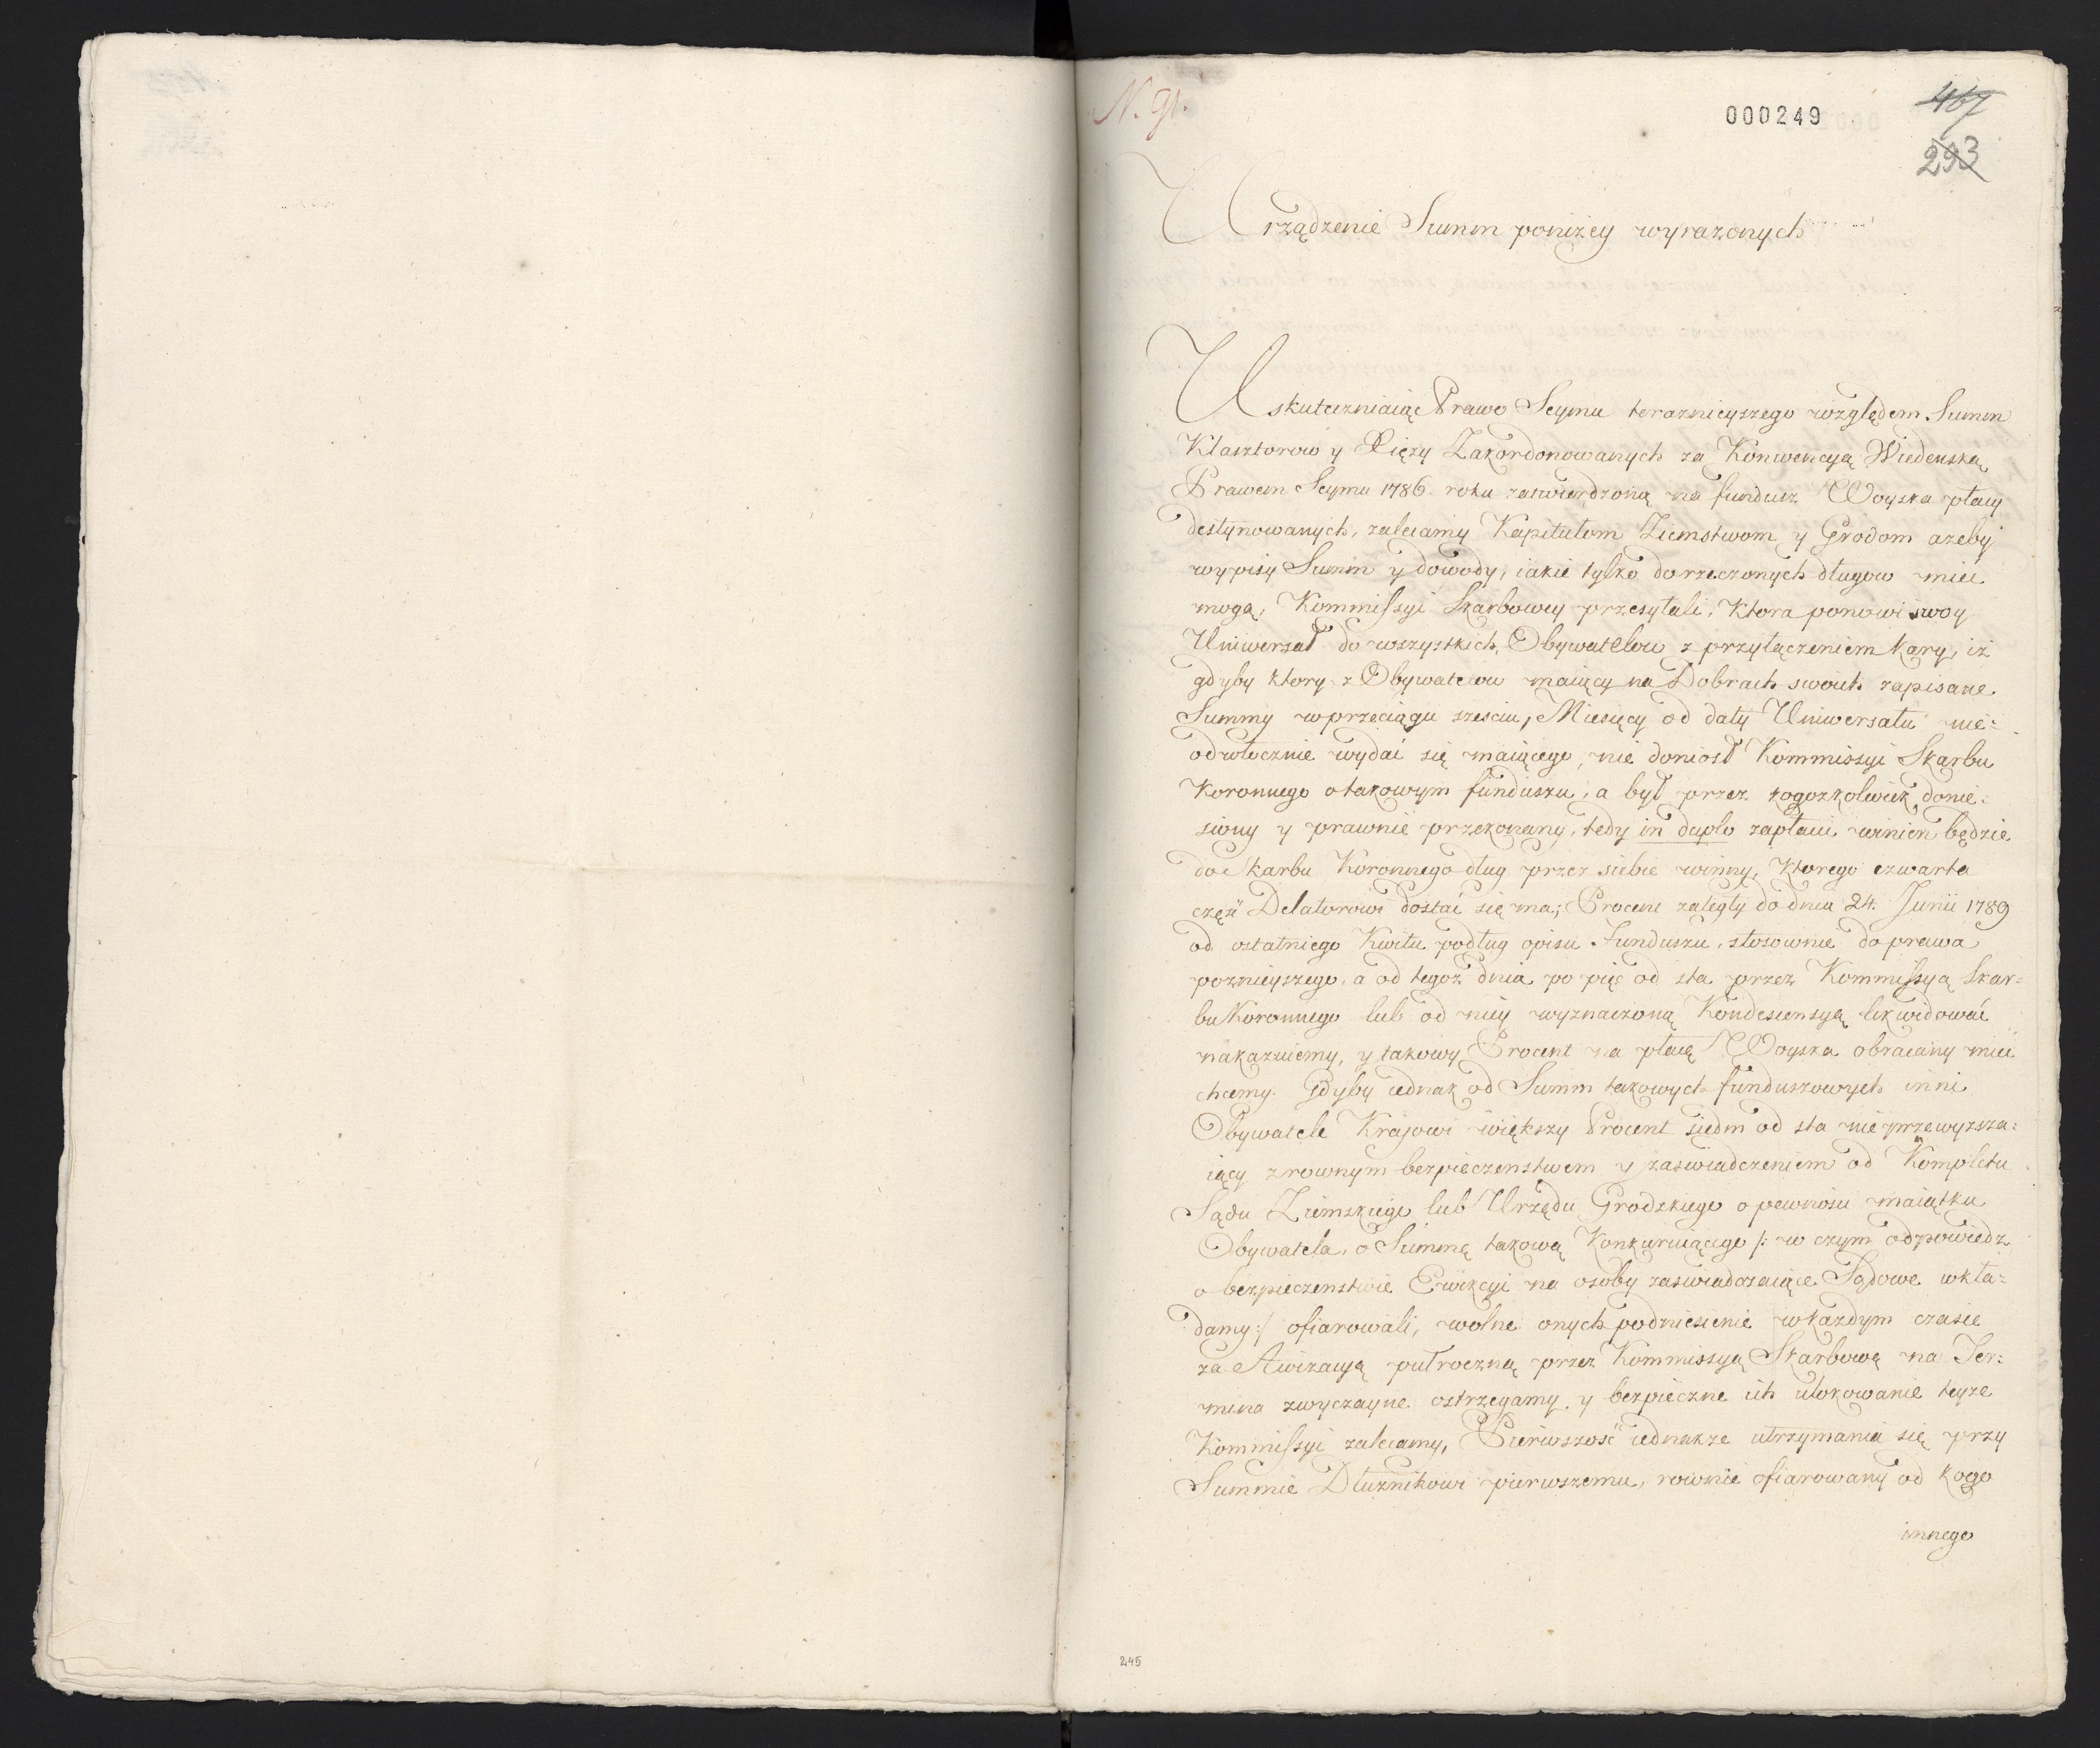 N. 91.
000249
467
293
Urządzenie Summ poniżey wyrazonych
Uskuteczniaiąc Prawo Seymu teraznieyszego względem Summ
Klasztorow y Xięży Zakordonowanych za Konwencyą Wiedenską
Prawem Seymu 1786 roku zatwierdzoną na fundusz Woyska płacy
destynowanych, zalecamy Kapitułom Ziemstwom y Grodom azeby
wypisy Summ y dowody, iakie tylko do rzeczonych długow miec
mogą, Kommissyi Skarbowey przesyłali, Ktora ponowi swoy
Uniwersał do wszystkich Obywatelow z przyłączeniem kary, iż
gdyby ktory z Obywatelow maiący na Dobrach swoich zapisane
Summy w przeciągu szesciu Miesięcy od daty Uniwersału nie=
odwłocznie wydać się maiącego, nie doniosł Kommissyi Skarbu
Koronnego o takowym funduszu, a był przez kogozkolwiek donie=
siony y prawnie przekonany, tedy in duplo zapłacic winien będzie
do Skarbu Koronnego dług przez siebie winny, Ktorego czwarta
częsć Delatorowi dostać się ma; Procent zaległy do dnia 24. Junii 1789
od ostatniego Kwitu podług opisu Funduszu, stosownie do prawa
poznieyszego, a od tegoz dnia po pięc od sta przez Kommissyą Skar=
bu Koronnego lub od niey wyznaczoną Kondescensyą likwidować
nakazuiemy, y takowy Procent na płacę Woyska obracany miec
chcemy. Gdyby iednak od Summ takowych funduszowych inni
Obywatele Krajowi większy Procent siedm od sta nie przewyzsza=
iący z rownym bezpieczenstwem y zaswiadczeniem od Kompletu
Sądu Ziemskiego lub Urzędu Grodzkiego o pewnosci maiątku
Obywatela, o Summę takową Konkuruiącego /: w czym odpowiedz
o bezpieczenstwie Ewikcyi na osoby zaswiadczaiące Sądowe wkła=
damy :/ ofiarowali, wolne onych podniesienie w kazdym czasie
za Awizacyą pułroczną przez Kommissyą Skarbową na Ter=
mina zwyczayne ostrzegamy, y bezpieczne ich ulokowanie teyze
Kommissyi zalecamy, Pierwszosć iednakze utrzymania się przy
Summie Dłuznikowi pierwszemu, rownie ofiarowany od kogo
innego
245